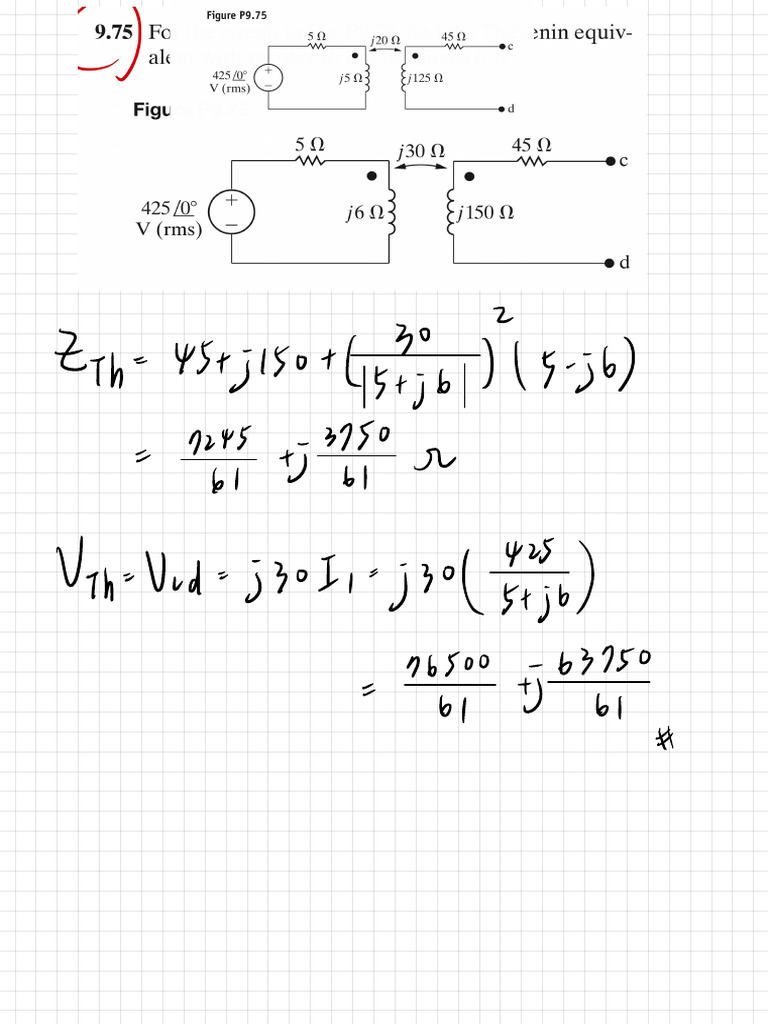 Figure P9.75
9.75 Fo
enin equiv-
ale
Figu
5 Ω j20 Ω 45 Ω
c
425 /0° V (rms)
+
−
j5 Ω j125 Ω
d
5 Ω j30 Ω 45 Ω
c
425 /0°
V (rms)
+
−
j6 Ω j150 Ω
d
Z_Th = 45 + j150 + (30 / |5 + j6|)² (5 - j6)
= 7245/61 + j 3750/61 Ω
V_Th = V_cd = j30 I₁ = j30 (425 / (5 + j6))
= 76500/61 + j 63750/61
#